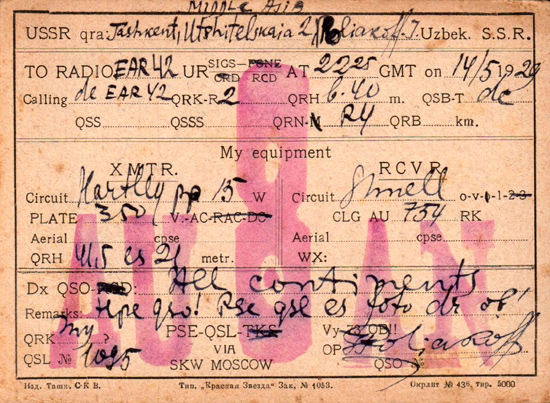 MIDDLE ASIA
USSR qra: Tashkent, Utshitelskaia 2 Poliakoff. J. Uzbek. S.S.R.
TO RADIO EAR42 UR SIGS-FONE CRD RCD AT 2225 GMT on 14/5 1929
Calling de EAR42 QRK-R 2 QRH 6.40 m. QSB-T dc
QSS QSSS QRN-M R4 QRB km.
My equipment
XMTR. RCVR.
Circuit Hartlly pp 15 W Circuit Shnell o-v-1-2-3
PLATE 350 V.-AC-RAC-DC CLG AU 7SY RK
Aerial cpse Aerial cpse.
QRH 41,5 es 21 metr. WX:
Dx QSO- All continents
Remarks: Hpe qso! Pse qsl es foto dr ob!
QRK my ? PSE-QSL-TKS! Vy-73-OB!!
QSL № 1095 VIA OP Poliakoff
SKW MOSCOW QSO №
AU 8 AN
Изд. Ташк. С-К В. Тип. „Красная Звезда" Зак. № 1053. Окрлит № 436, тир. 5000